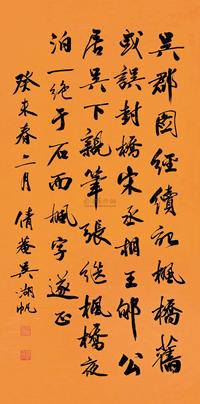 吴郡图经续记枫桥旧
或误封桥宋丞相王郇公
居吴下亲笔张继枫桥夜
泊一绝于石而枫字遂正
癸未春二月 倩庵吴湖帆